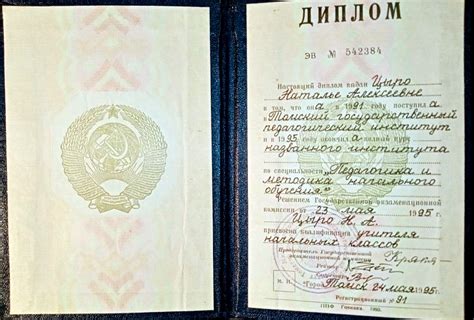 ДИПЛОМ
ЭВ № 542384
Настоящий диплом выдан Цыро
Наталье Алексеевне
в том, что она в 1991 году поступила
Томский государственный
педагогический институт
и в 1995 окончила полный курс
названного института
по специальности „Педагогика и
методика начального
обучения"
Решением Государственной экзаменационной
комиссии от 23 мая 1995 г.
Цыро Н. А.
присвоена квалификация учителя
начальных классов
Председатель Государственной
экзаменационной комиссии
Ректор
Секретарь
М. П. Город Томск 24 мая 1995 г.
Регистрационный № 91